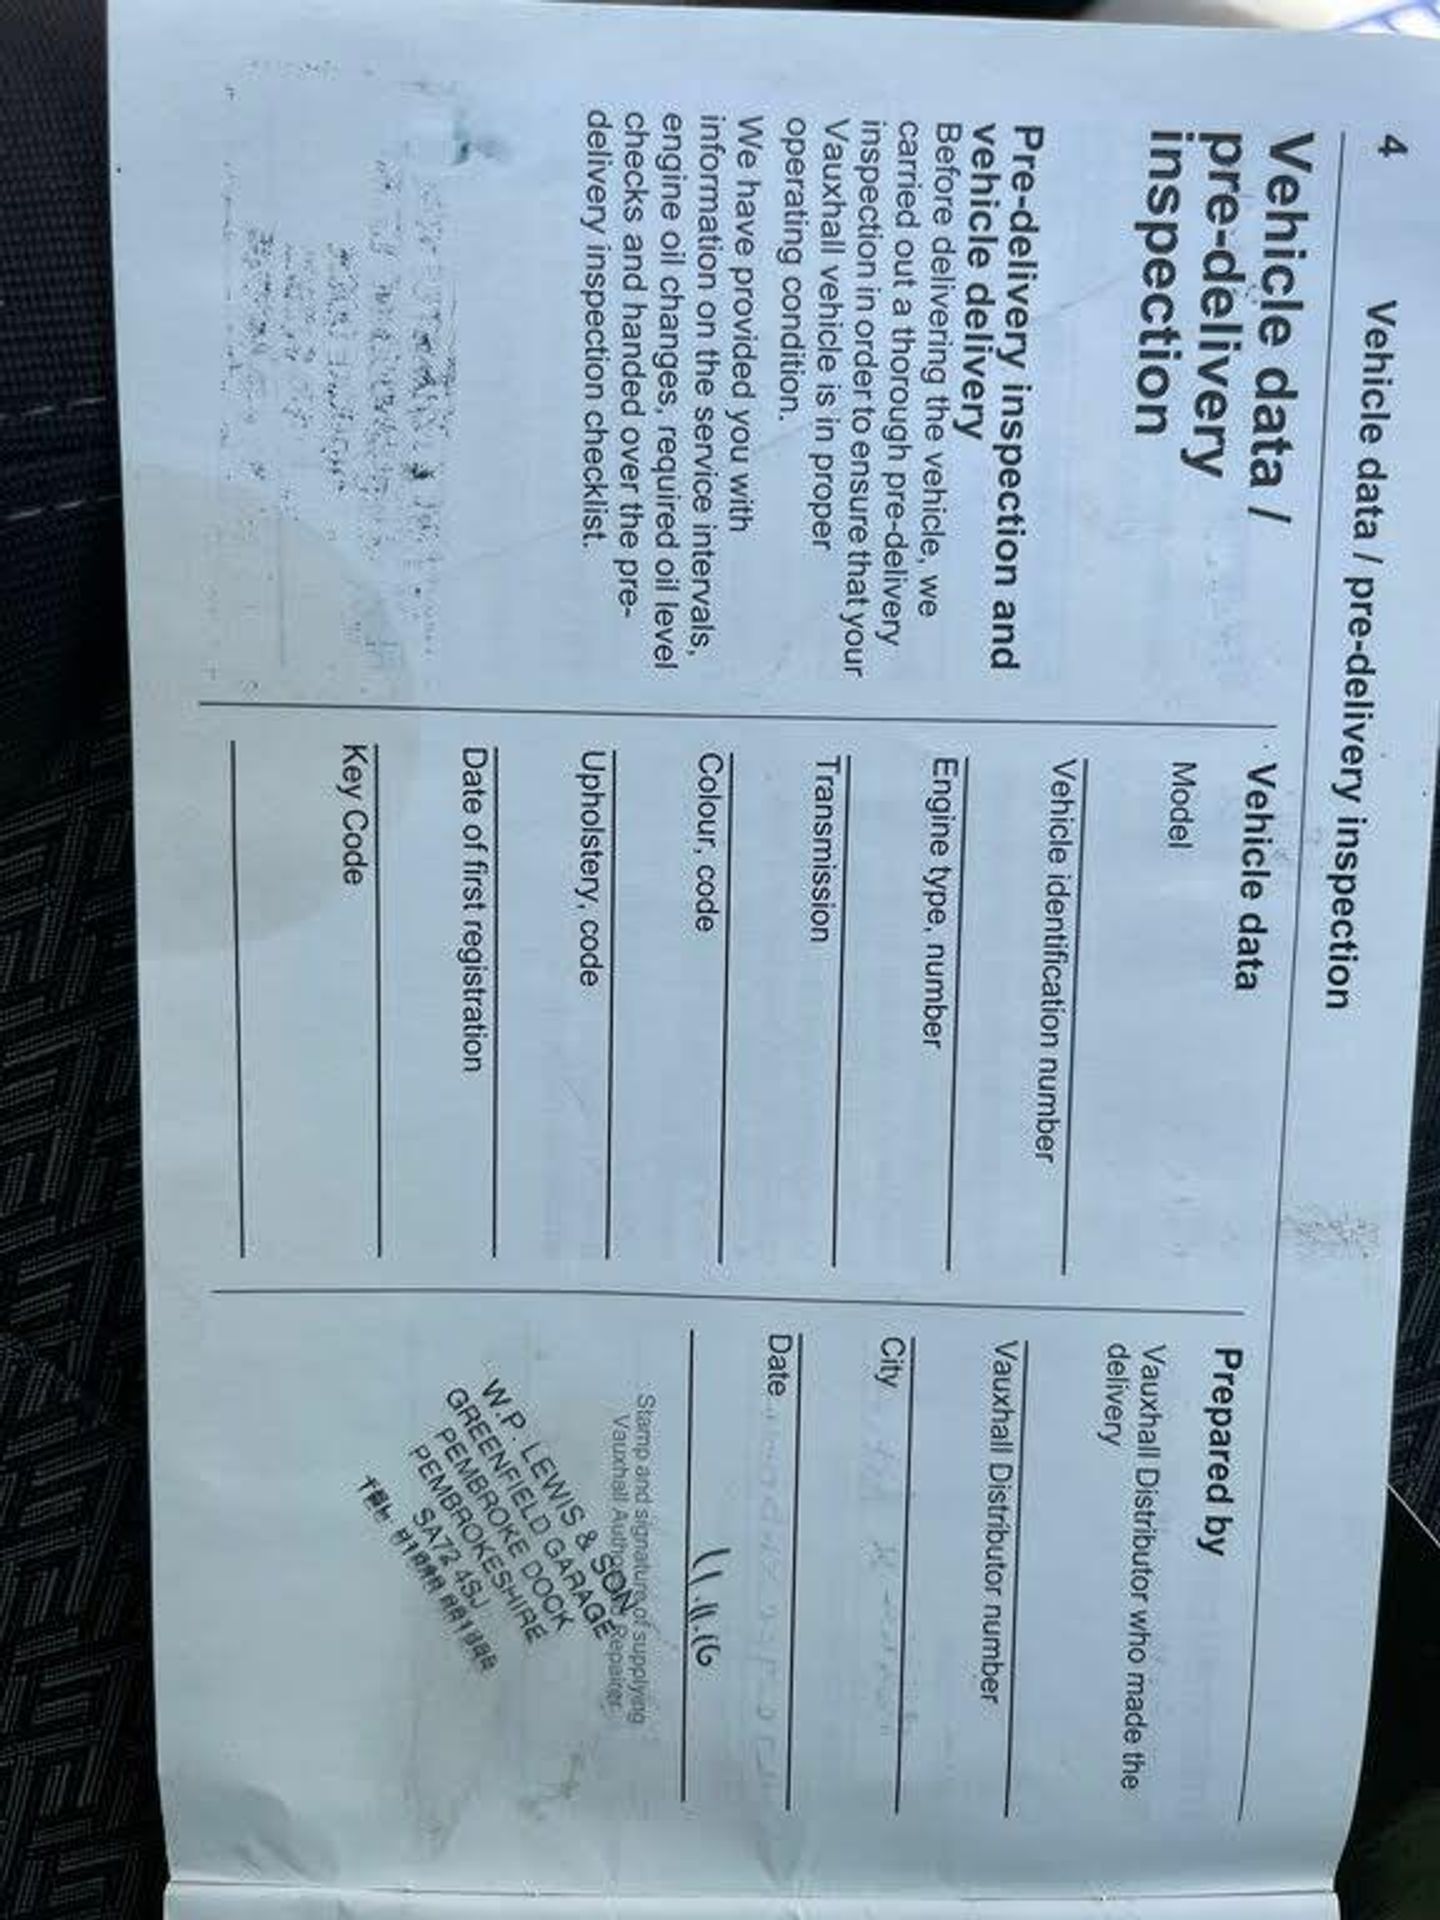 4
Vehicle data / pre-delivery inspection
Vehicle data /
pre-delivery
inspection
Pre-delivery inspection and
vehicle delivery
Before delivering the vehicle, we
carried out a thorough pre-delivery
inspection in order to ensure that your
Vauxhall vehicle is in proper
operating condition.
We have provided you with
information on the service intervals,
engine oil changes, required oil level
checks and handed over the pre-
delivery inspection checklist.
Vehicle data
Model
Vehicle identification number
Engine type, number
Transmission
Colour, code
Upholstery, code
Date of first registration
Key Code
Prepared by
Vauxhall Distributor who made the
delivery
Vauxhall Distributor number
City
Date
11.11.16
Stamp and signature of supplying
Vauxhall Authorised Repairer
W.P. LEWIS & SON
GREENFIELD GARAGE
PEMBROKE DOCK
PEMBROKESHIRE
SA72 4SJ